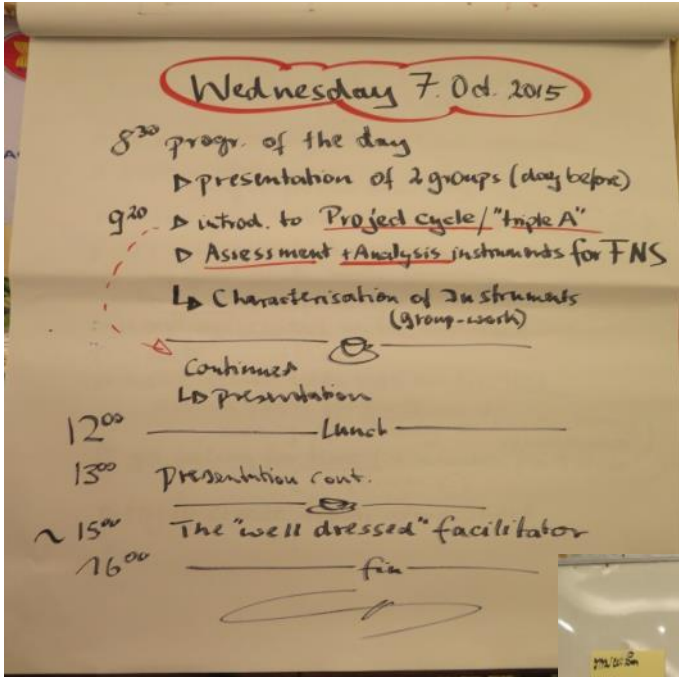 Wednesday 7. Oct. 2015
8³⁰ progr. of the day
▷ presentation of 2 groups (day before)
9²⁰ ▷ introd. to Project cycle/"triple A"
▷ Assessment + Analysis instruments for FNS
↳ Characterisation of Instruments
(group-work)
Continues
↳ presentation
12⁰⁰ Lunch
13⁰⁰ Presentation cont.
~ 15⁰⁰ The "well dressed" facilitator
16⁰⁰ fin